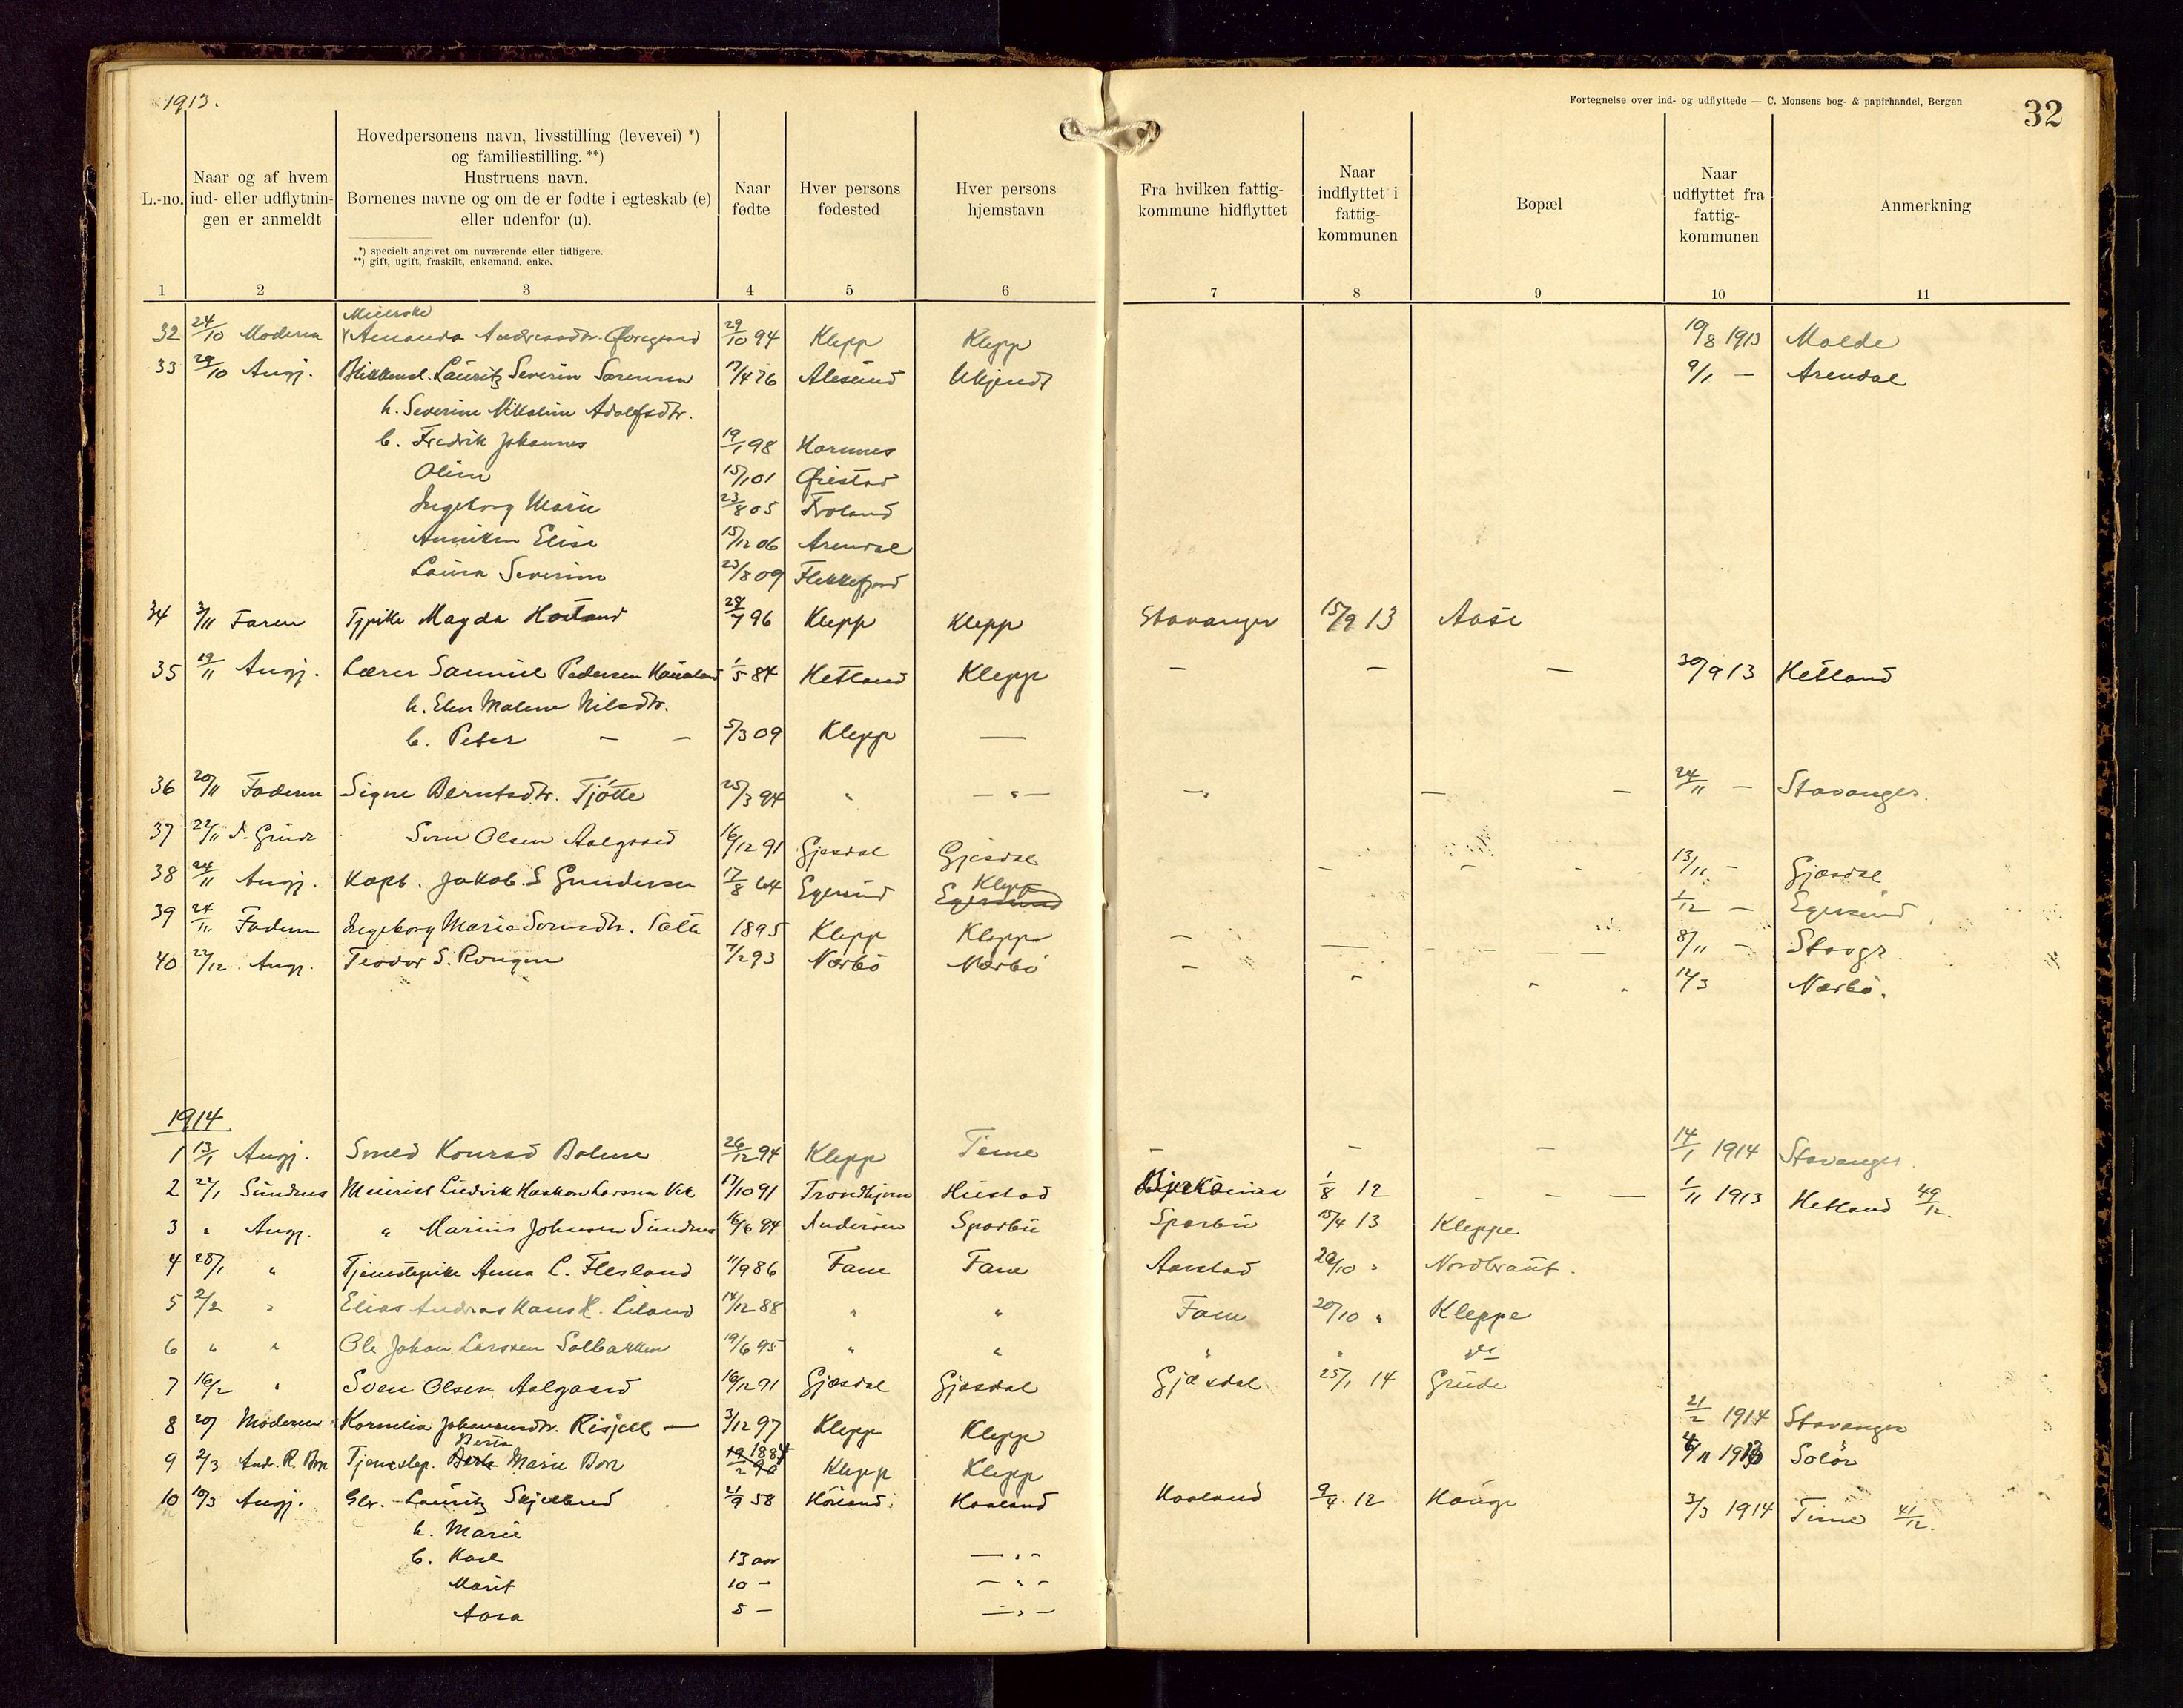 1913.
Fortegnelse over ind- og udflyttede — C. Monsens bog- & papirhandel, Bergen
32
L.-no.
Naar og af hvem ind- eller udflytningen er anmeldt
Hovedpersonens navn, livsstilling (levevei) *)
og familiestilling. **)
Hustruens navn.
Børnenes navne og om de er fødte i egteskab (e)
eller udenfor (u).
*) specielt angivet om nuværende eller tidligere.
**) gift, ugift, fraskilt, enkemand, enke.
Naar fødte
Hver persons fødested
Hver persons hjemstavn
Fra hvilken fattigkommune hidflyttet
Naar indflyttet i fattigkommunen
Bopæl
Naar udflyttet fra fattigkommunen
Anmerkning
1 2 3 4 5 6 7 8 9 10 11
Meierske
32 24/10 Moderen Amanda Andreasdtr. 29/10 94 Klepp Klepp 19/8 1913 Molde
33 29/10 Angj. Blikkensl. Lauritz Severin Sørensen 17/4 76 Alesund Ukjendt 9/1 — Arendal
h. Severine Nikoline Adolfsdtr.
b. Fredrik Johannes 19/1 98 Hornnes
Oline 15/1 01 Øiestad
Ingeborg Marie 23/8 05 Froland
Anniken Elise 15/12 06 Arendal
Laura Severine 23/8 09 Flekkefjord
34 3/11 Faren Tjpike Magda Hoiland 28/7 96 Klepp Klepp Stavanger 15/9 13 Aase
35 19/11 Angj. Lærer Samuel Pedersen 1/5 84 Hetland Klepp — — — 30/9 13 Hetland
h. Elen Malene Nilsdtr.
b. Peter — — 5/3 09 Klepp —
36 20/11 Faderen Signe Berntsdtr. Tjötta 25/3 94 " — " — — " — — 24/11 — Stavanger.
37 22/11 S. Grude Sven Olsen Aalgaard 16/12 91 Gjesdal Gjesdal 13/11 — Gjæsdal
38 24/11 Angj. Kapt. Jakob. S Gundersen 17/8 64 Egersund Klepp Egersund 1/12 — Egersund.
39 24/11 Faderen Ingeborg Marie Sørnsdtr. Salte 1895 Klepp Kleppe — — — — — 8/11 — Stavgr.
40 22/12 Angj. Teodor S. Rongen 7/2 93 Nærbö Nærbö — " " " 12/3 Nærbö.
1914
1 13/1 Angj. Smed Konrad Bolme 26/12 94 Klepp Time — — — 14/1 1914 Stavanger.
2 22/1 Sundnes Meierist Ludvik Haakon Larssen Vik 17/10 91 Trondhjem Hustad 1/8 12 — — — 1/11 1913 Hetland 49/12.
3 " Angj. " Marius Johnsen Sundnes 16/6 94 Sparbu Sparbu 15/4 13 Kleppe
4 28/1 " Tjenestepike Anna L. Flesland 11/9 86 Fane Fane Aarstad 29/10 " Nordbraut.
5 2/2 " Elias Andreas Hans K. Liland 14/12 88 " " Fane 20/10 " Kleppe
6 " " Ole Johan Larssen Solbakken 19/6 95 " " " " do
7 16/2 " Sven Olsen Aalgaard 16/12 91 Gjæsdal Gjæsdal Gjæsdal 25/1 14 Grude
8 20/ Moderen Kornelia Johannesdtr. Risjell — 3/12 97 Klepp Klepp 21/2 1914 Stavanger
9 2/3 Andr. R. Bore Tjenestep. Berta Marie Bore 1884 Klepp Klepp 4/11 1913 Solör
10 10/3 Angj. Glr. Lauritz Skjælbred 21/9 58 Höiland Haaland Haaland 9/4 12 Hauge 3/3 1914 Time 41/12.
h. Marie
b. Karl 13 aar — " —
Marit 10 — — " —
Aasa 5 — — " —